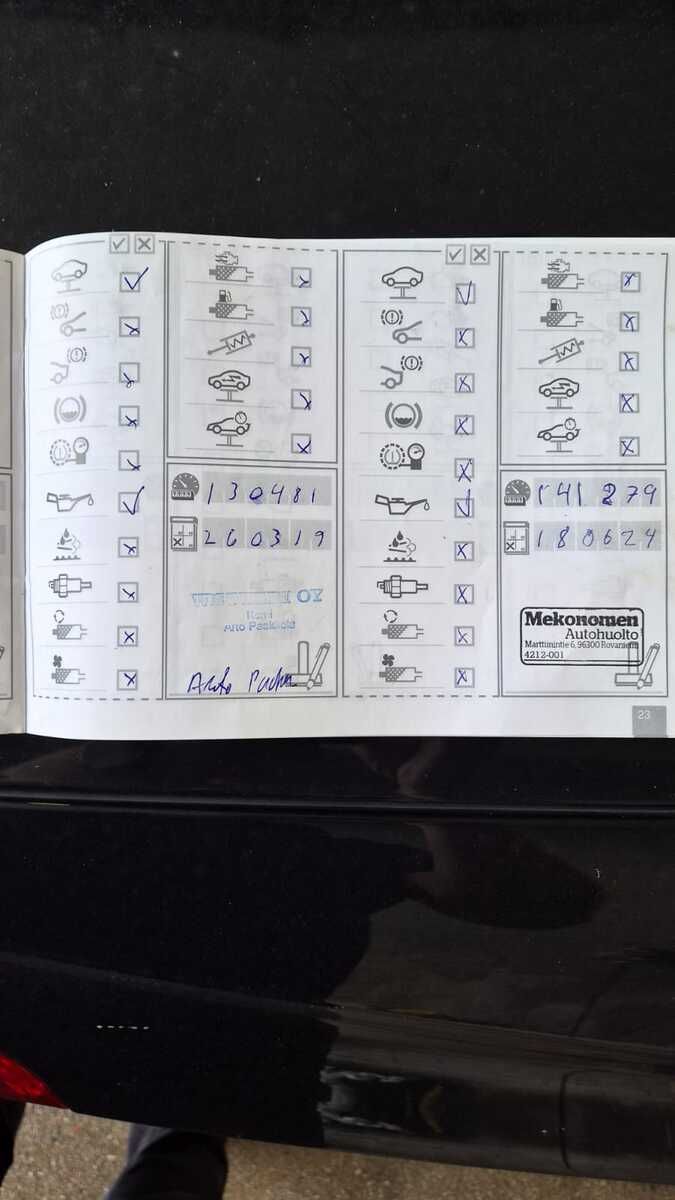 130481
260319
OY
Arto
141279
180624
Mekonomen
Autohuolto
Marttiinintie 6, 96300 Rovaniemi
4212-001
23